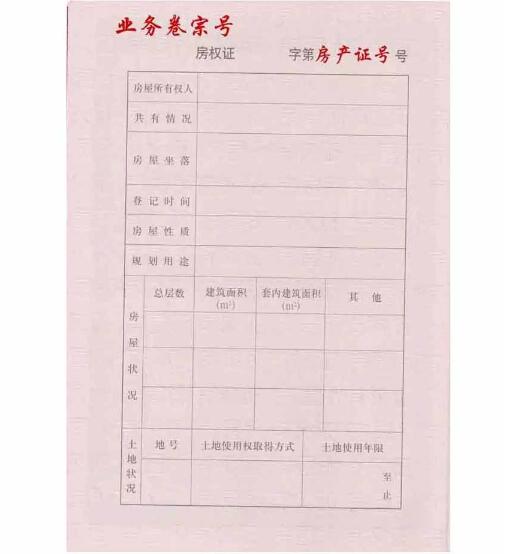 业务卷宗号
房权证 字第房产证号 号
房屋所有权人
共有情况
房屋坐落
登记时间
房屋性质
规划用途
房屋状况
总层数 建筑面积 套内建筑面积 其他
(m²) (m²)
土地状况
地号 土地使用权取得方式 土地使用年限
至
止